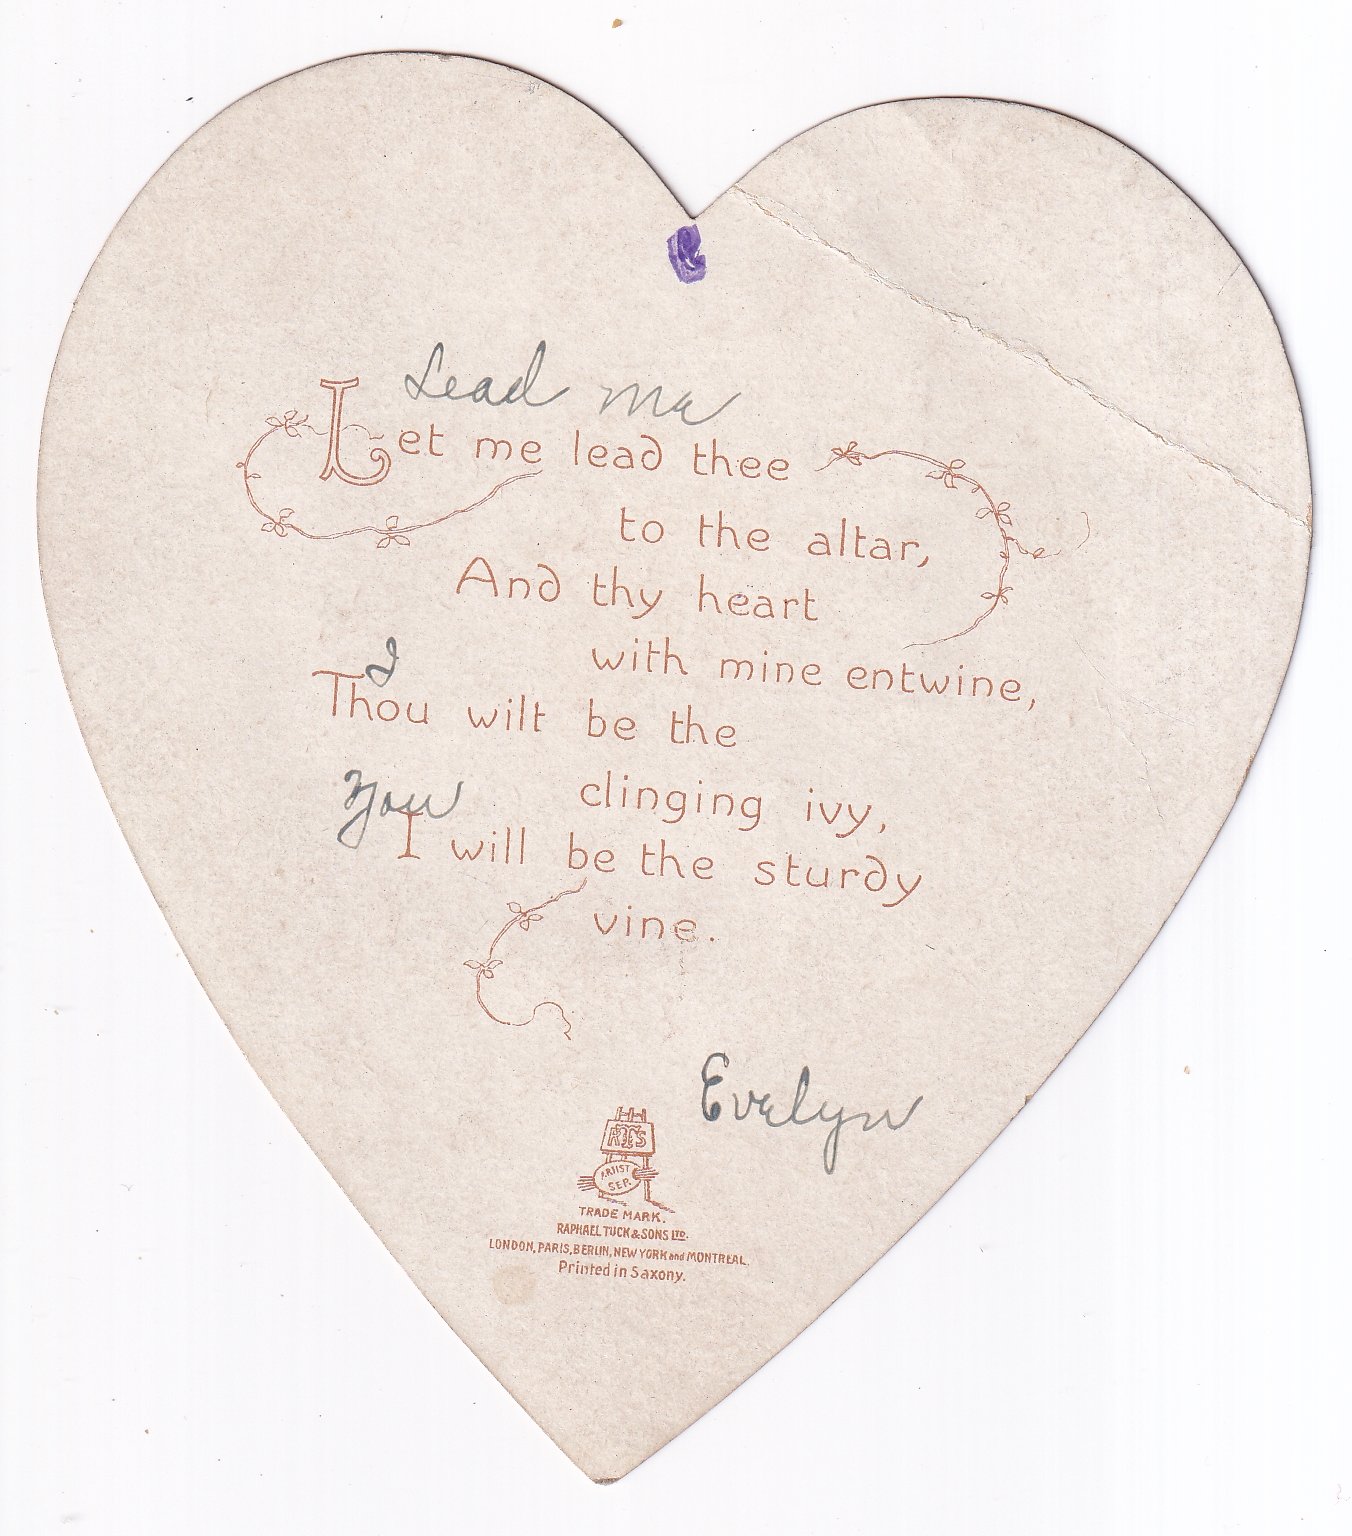 Lead me
Let me lead thee
to the altar,
And thy heart
with mine entwine,
I
Thou wilt be the
clinging ivy,
You
I will be the sturdy
vine.
Evelyn
RTS
ARTIST
SER.
TRADE MARK.
RAPHAEL TUCK & SONS LTD.
LONDON, PARIS, BERLIN, NEW YORK and MONTREAL.
Printed in Saxony.